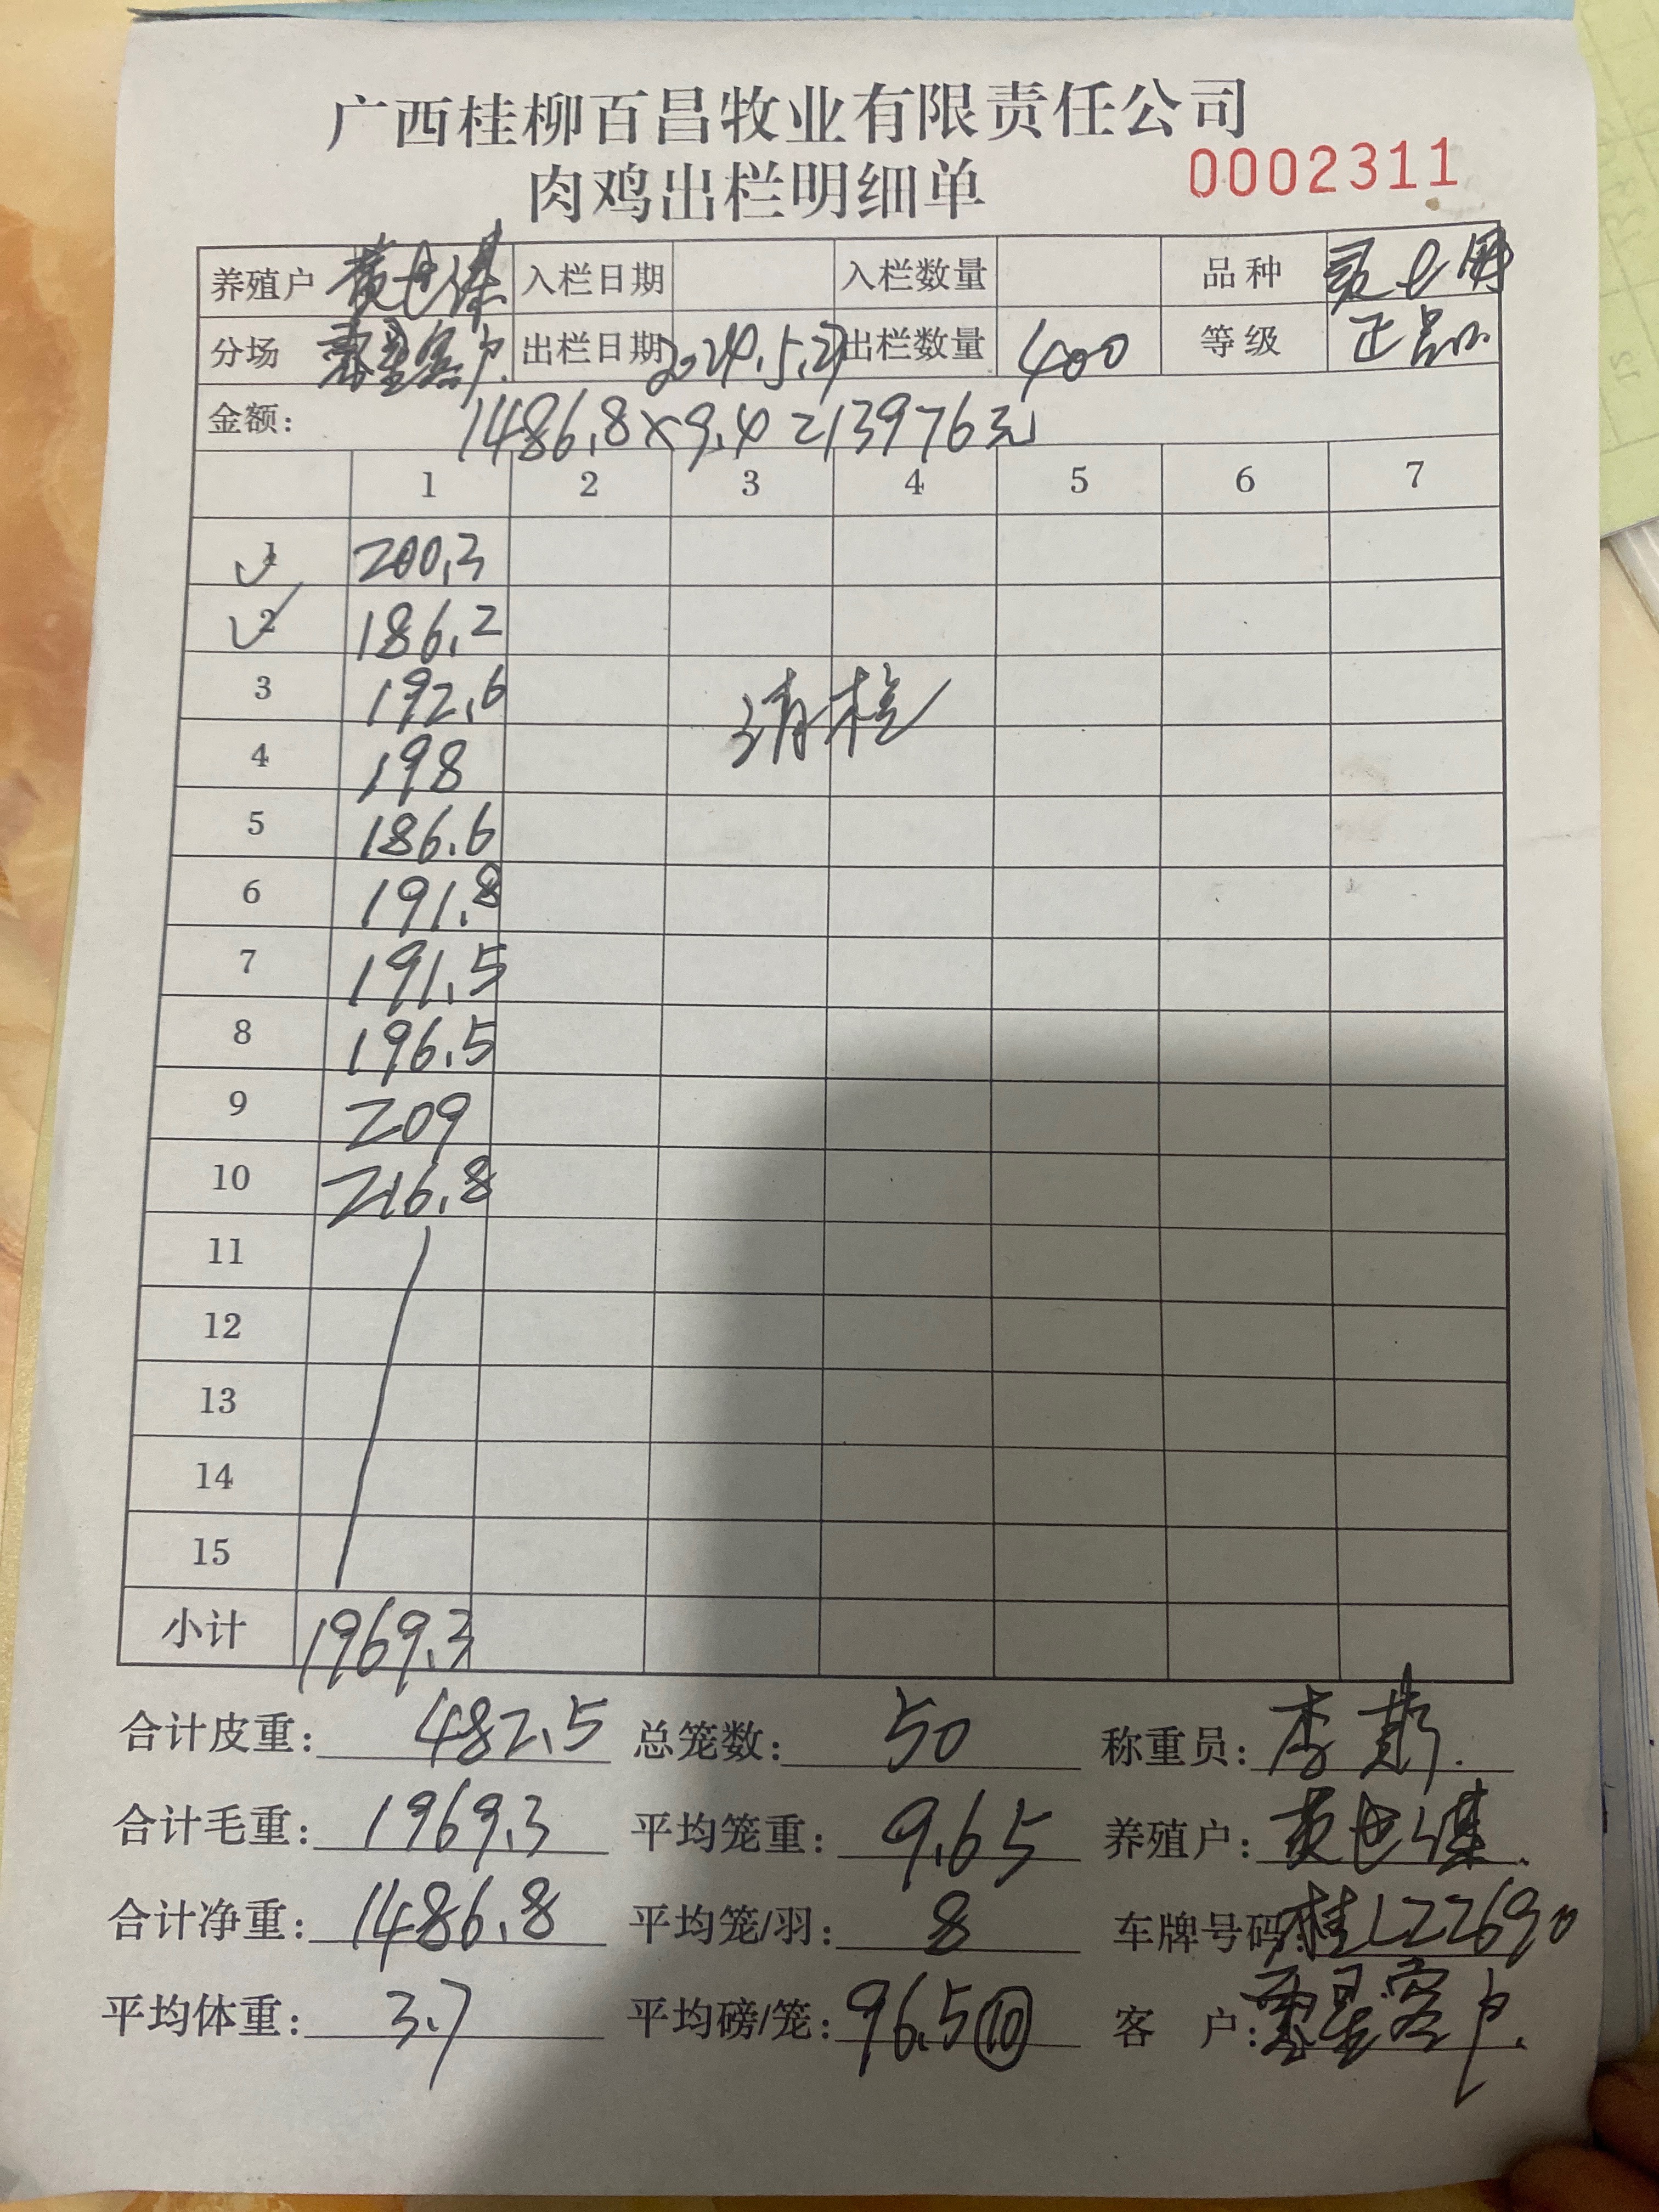 广西桂柳百昌牧业有限责任公司
肉鸡出栏明细单 0002311
养殖户 黄 入栏日期 入栏数量 品种
分场 零星客户 出栏日期 2024.5.27 出栏数量 400 等级 正品
金额: 1486.8×9.4=13976元
1 2 3 4 5 6 7
1 200.3
2 186.2
3 192.6 清栏
4 198
5 186.6
6 191.8
7 191.5
8 196.5
9 209
10 216.8
11
12
13
14
15
小计 1969.3
合计皮重: 482.5 总笼数: 50 称重员: 李
合计毛重: 1969.3 平均笼重: 9.65 养殖户: 黄
合计净重: 1486.8 平均笼/羽: 8 车牌号码: 桂L22690
平均体重: 3.7 平均磅/笼: 96.5 10 客 户: 零星客户